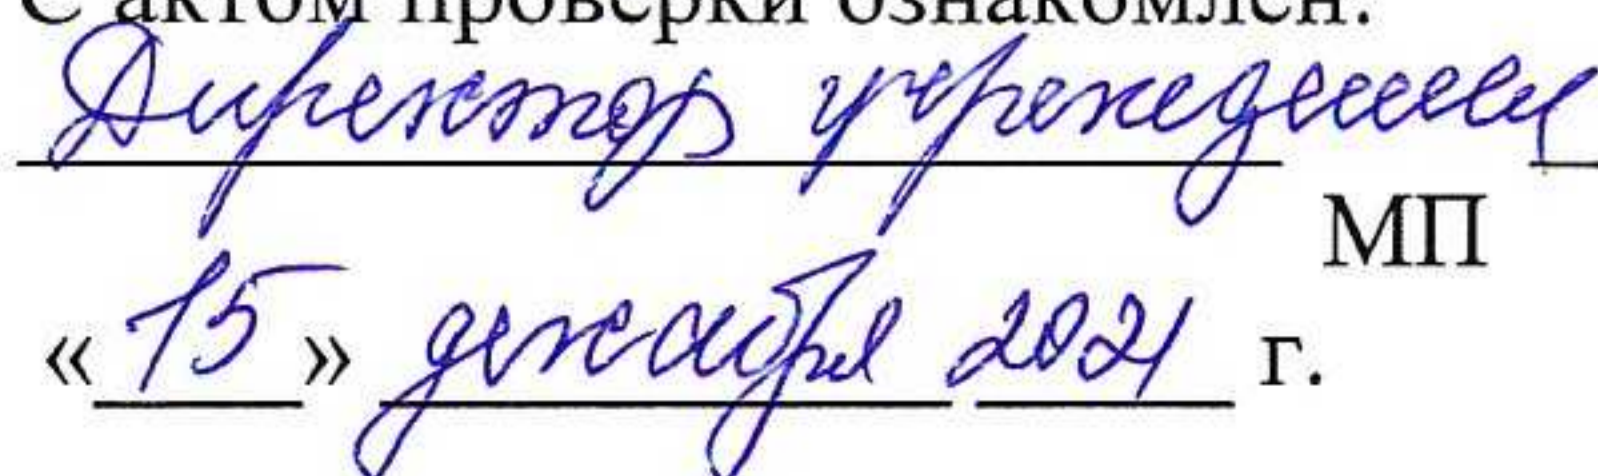 С актом проверки ознакомлен:
Директор учреждения
МП
«15» декабря 2021 г.